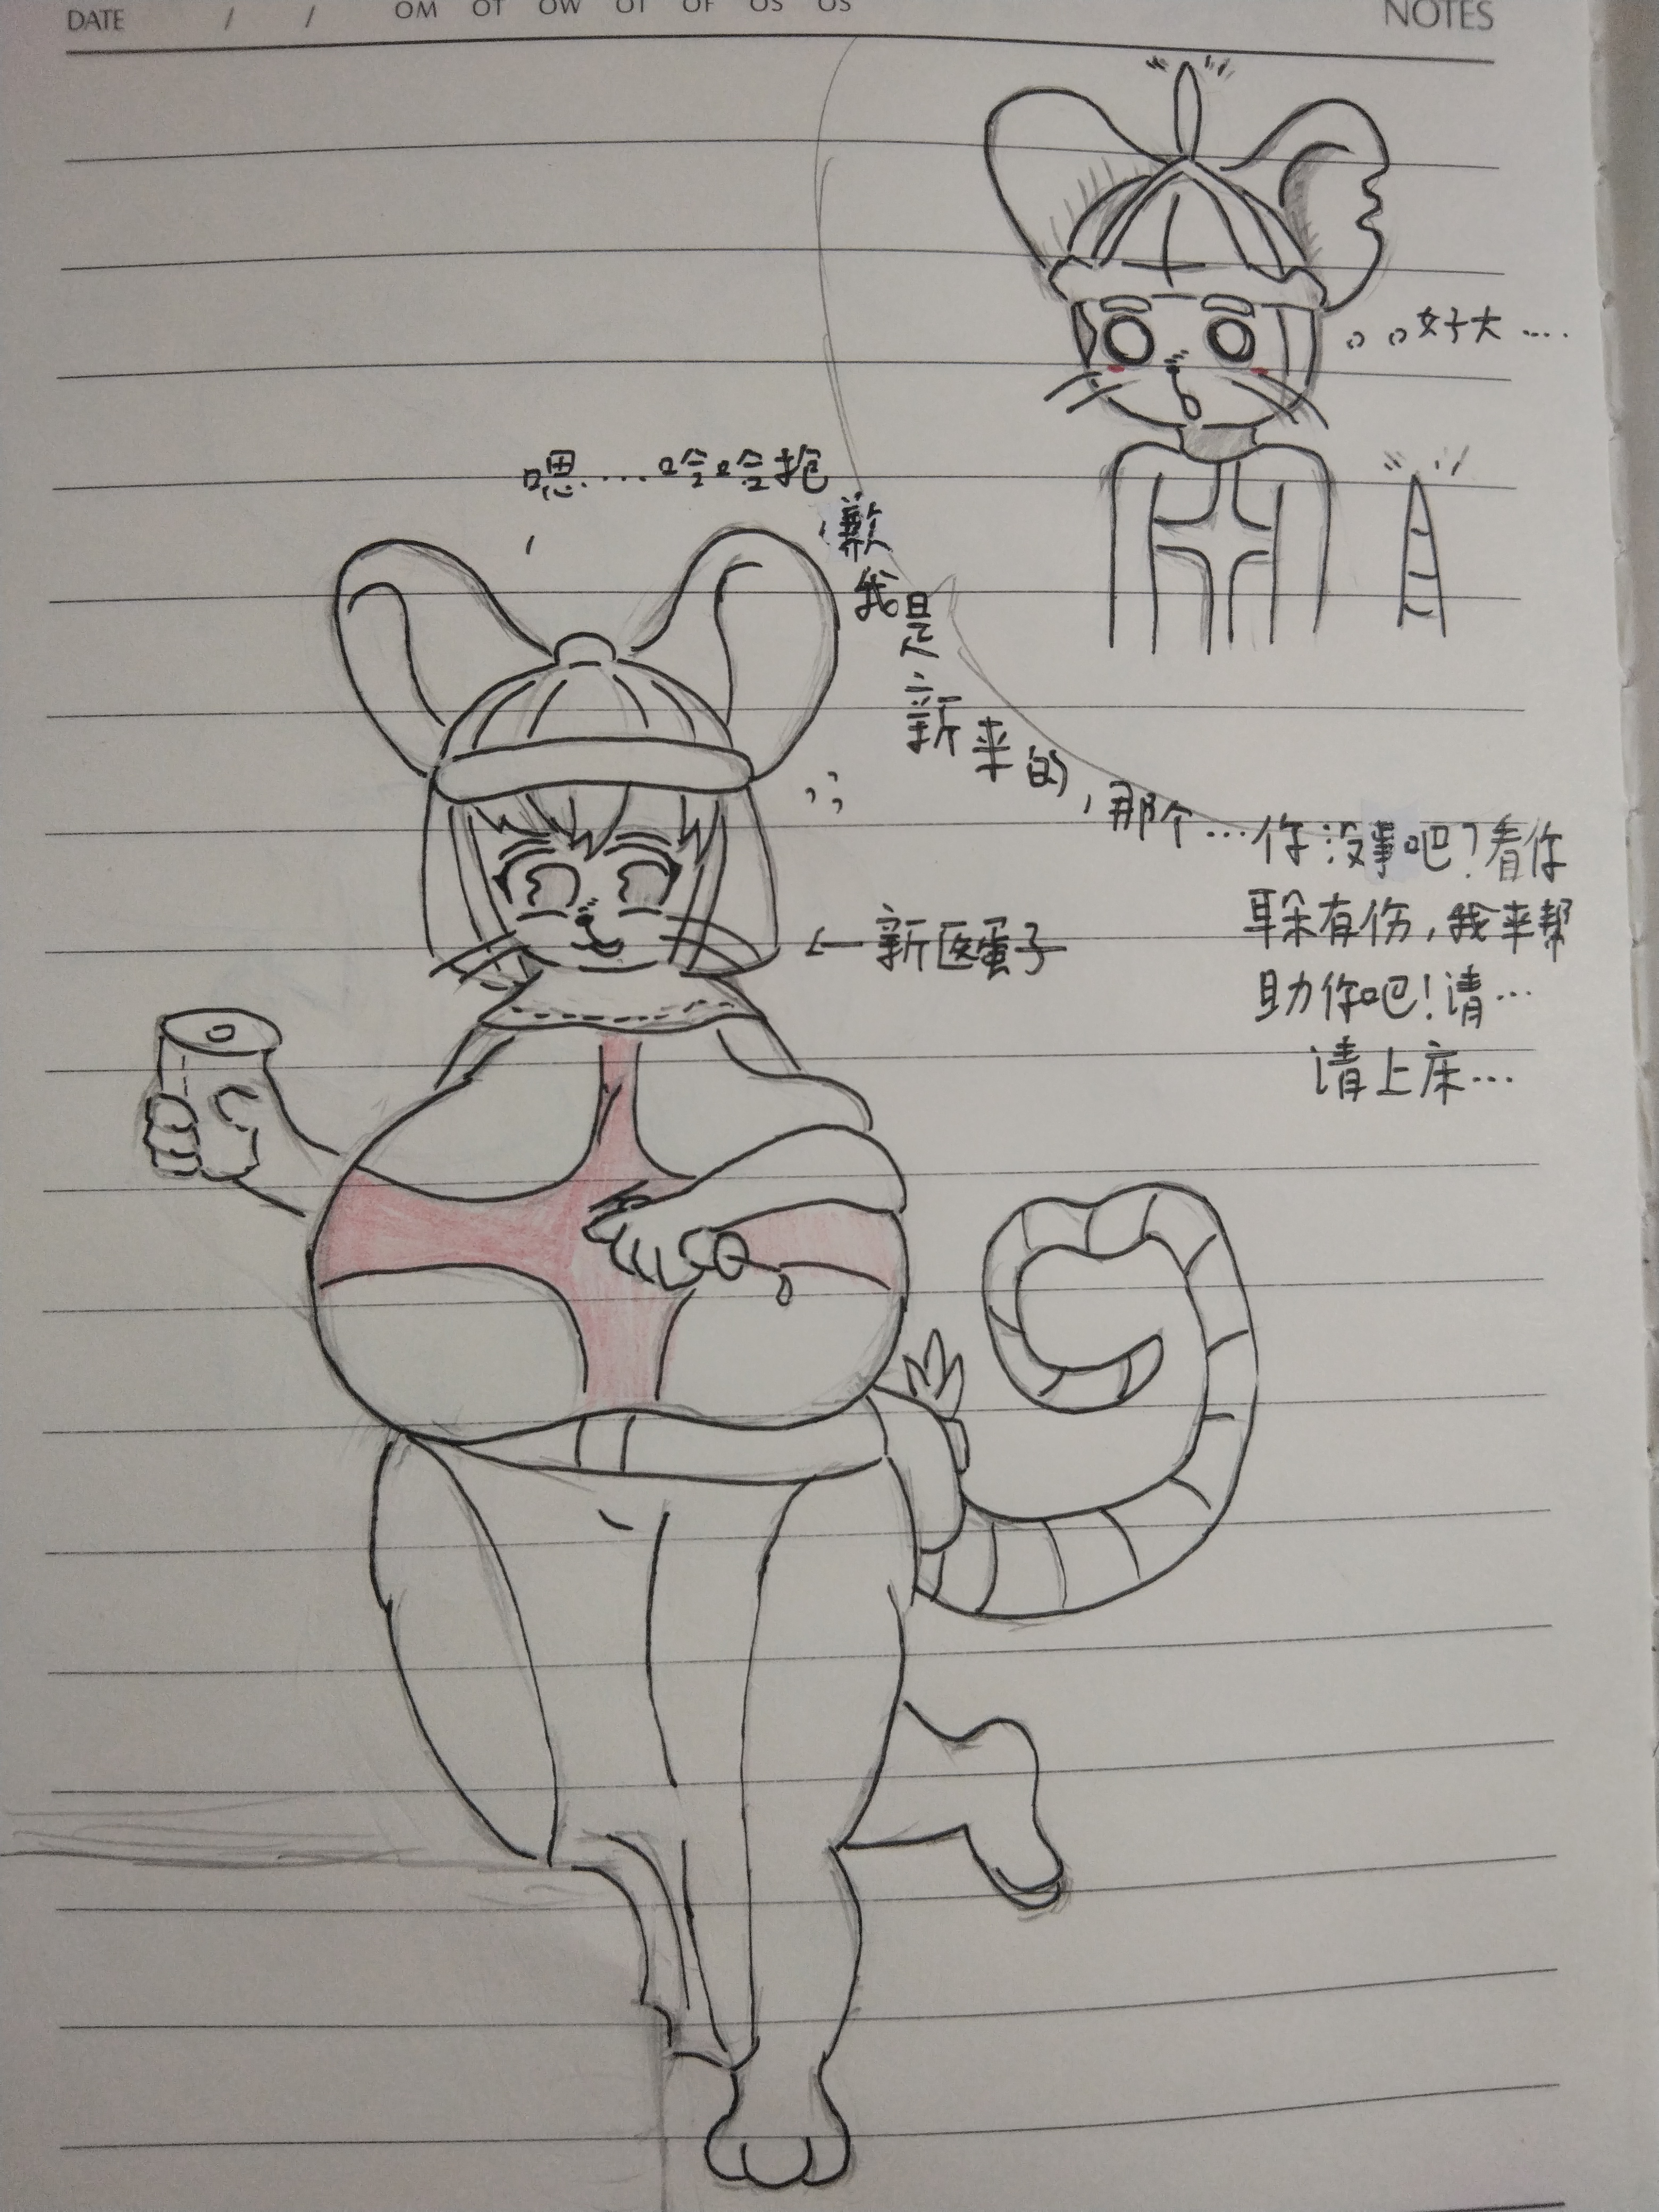 DATE / / OM OT OW OT OF OS OS NOTES
好大....
嗯....哈哈抱歉我是新来的,那个...你没事吧?看你
耳朵有伤,我来帮
助你吧!请...
请上床...
←新医蛋子